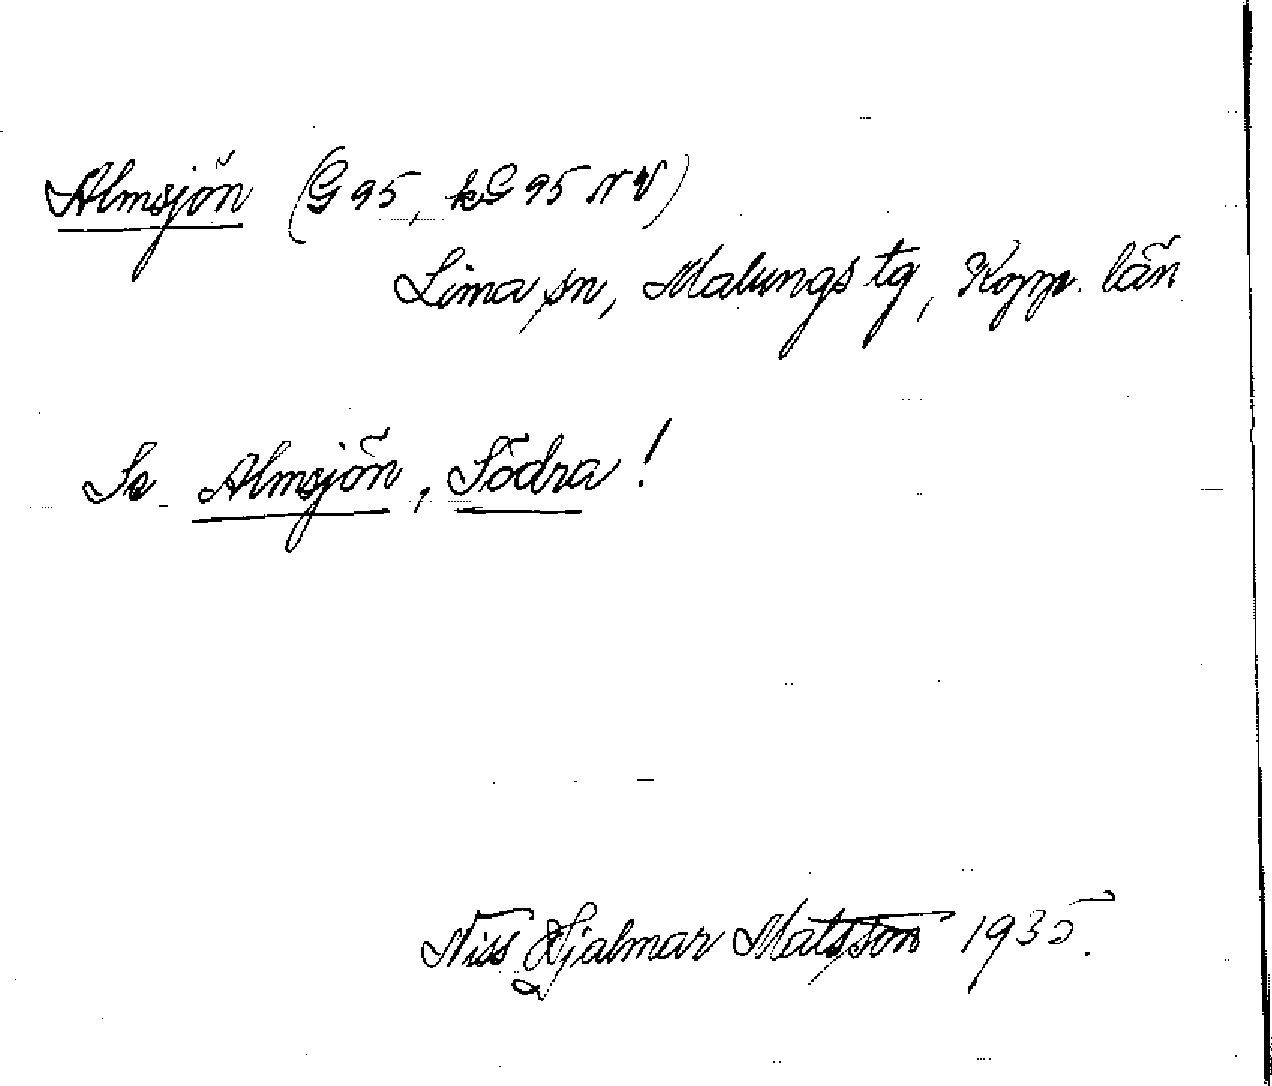 Almsjön (G 95, kG 95 NV)
Lima sn, Malungs tg, Kopp. län
Se Almsjön, Södra!
Niss Hjalmar Matsson 1935.